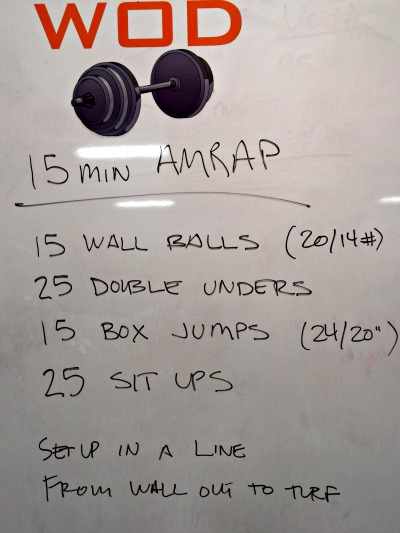 WOD
15 MIN AMRAP
15 WALL BALLS (20/14#)
25 DOUBLE UNDERS
15 BOX JUMPS (24/20")
25 SIT UPS
SETUP IN A LINE
FROM WALL OUT TO TURF